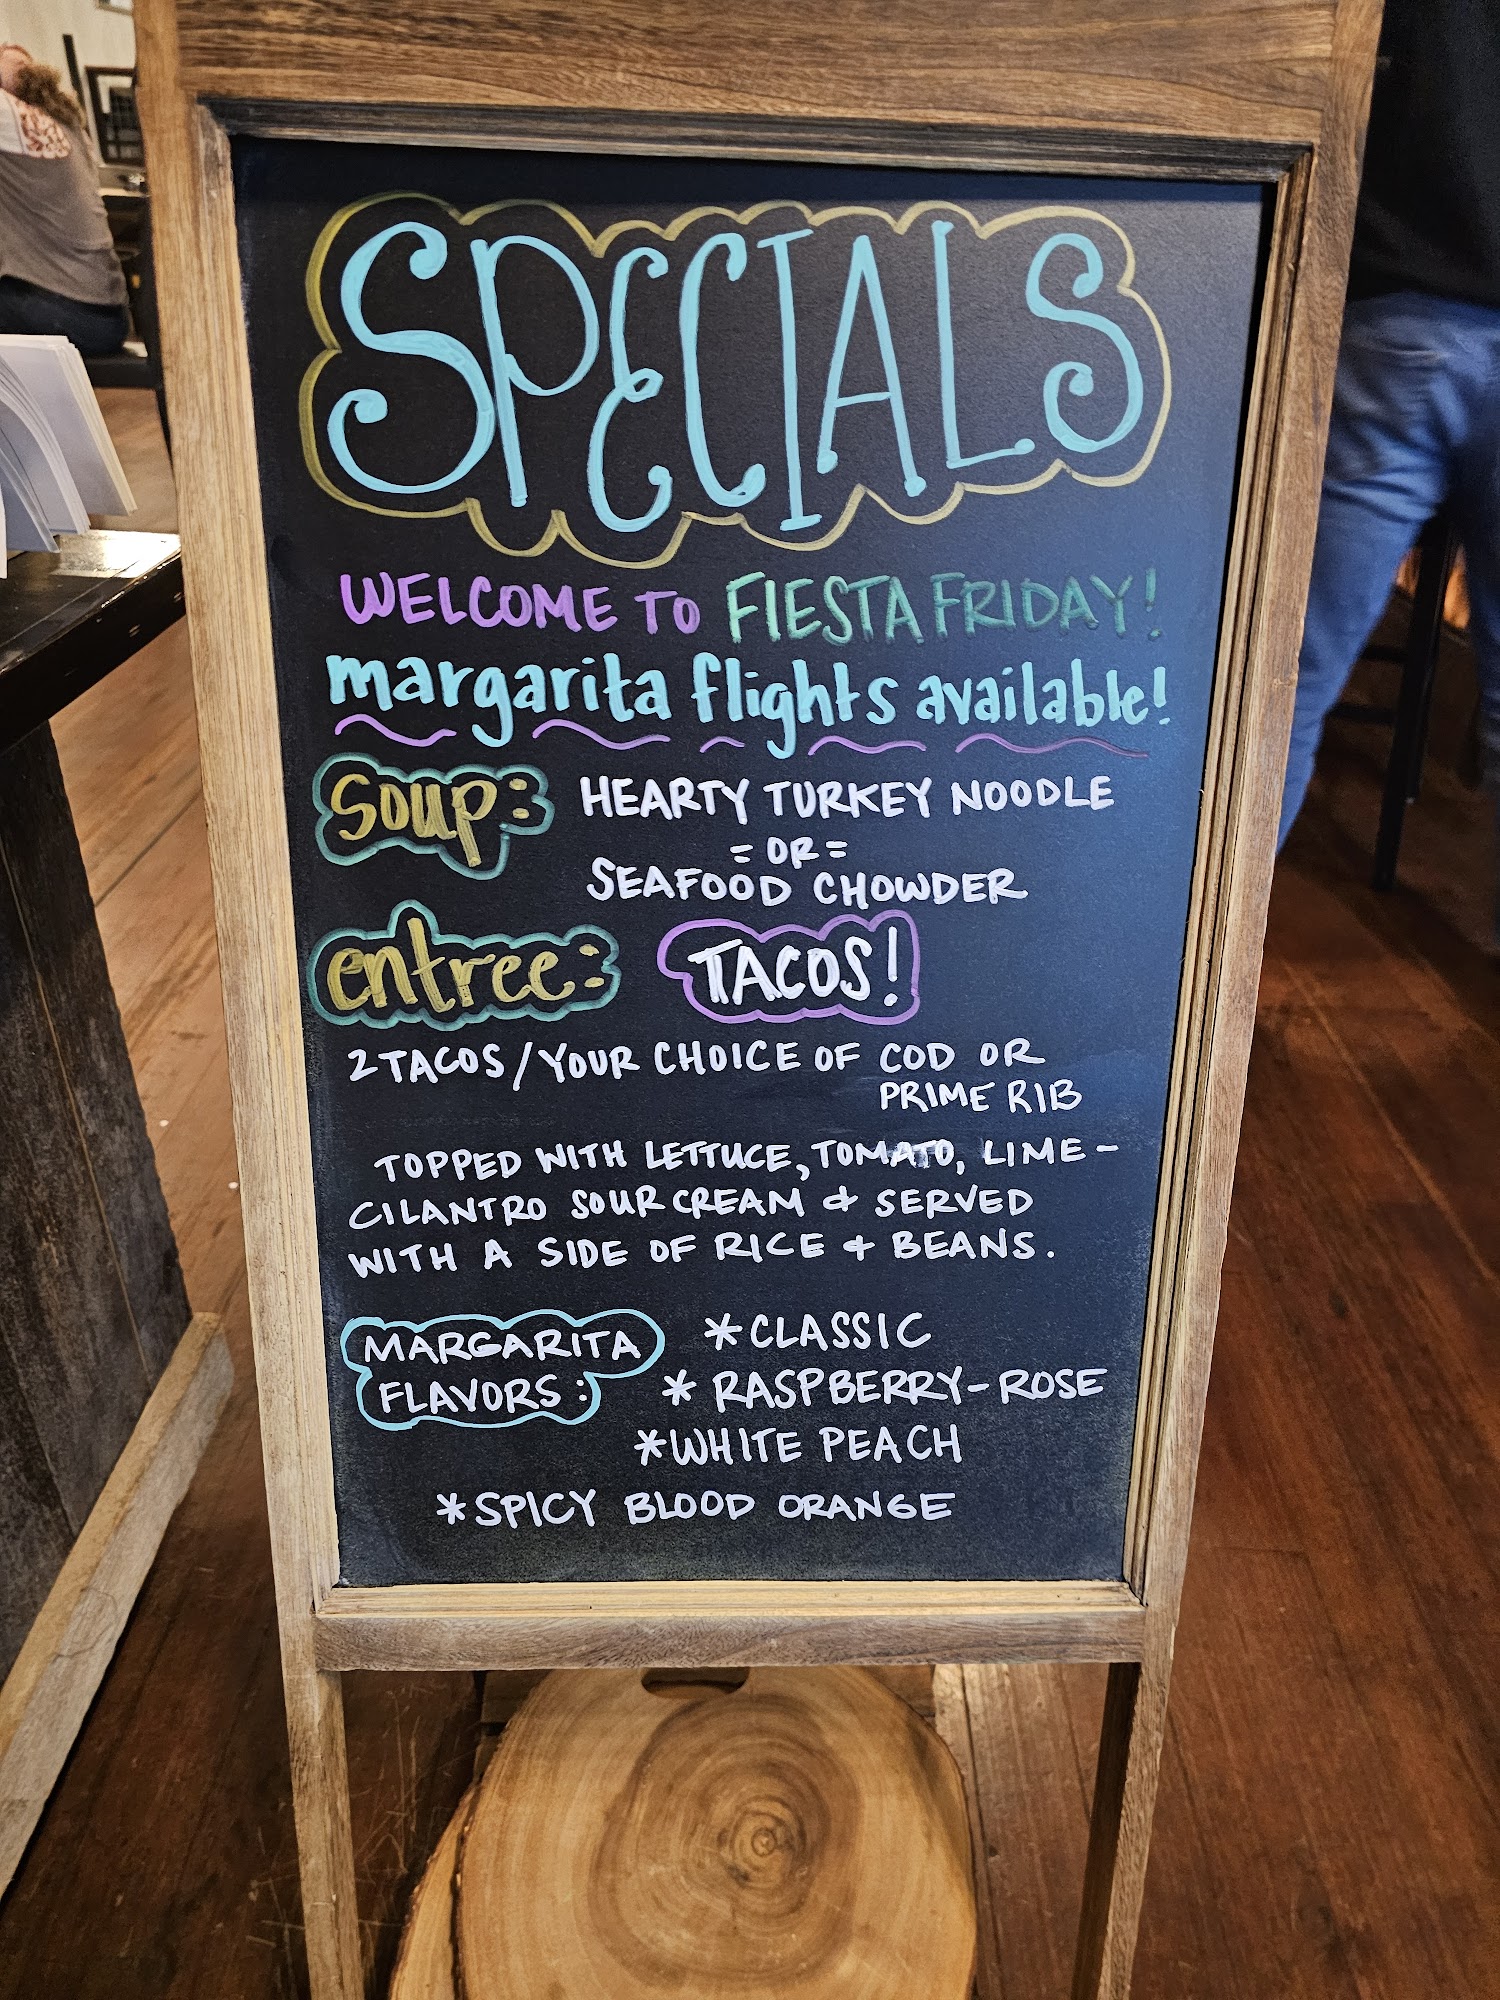 SPECIALS
WELCOME TO FIESTA FRIDAY!
margarita flights available!
soup: HEARTY TURKEY NOODLE
= OR =
SEAFOOD CHOWDER
entree: TACOS!
2 TACOS / YOUR CHOICE OF COD OR
PRIME RIB
TOPPED WITH LETTUCE, TOMATO, LIME-
CILANTRO SOUR CREAM & SERVED
WITH A SIDE OF RICE & BEANS.
MARGARITA *CLASSIC
FLAVORS: * RASPBERRY-ROSE
*WHITE PEACH
*SPICY BLOOD ORANGE